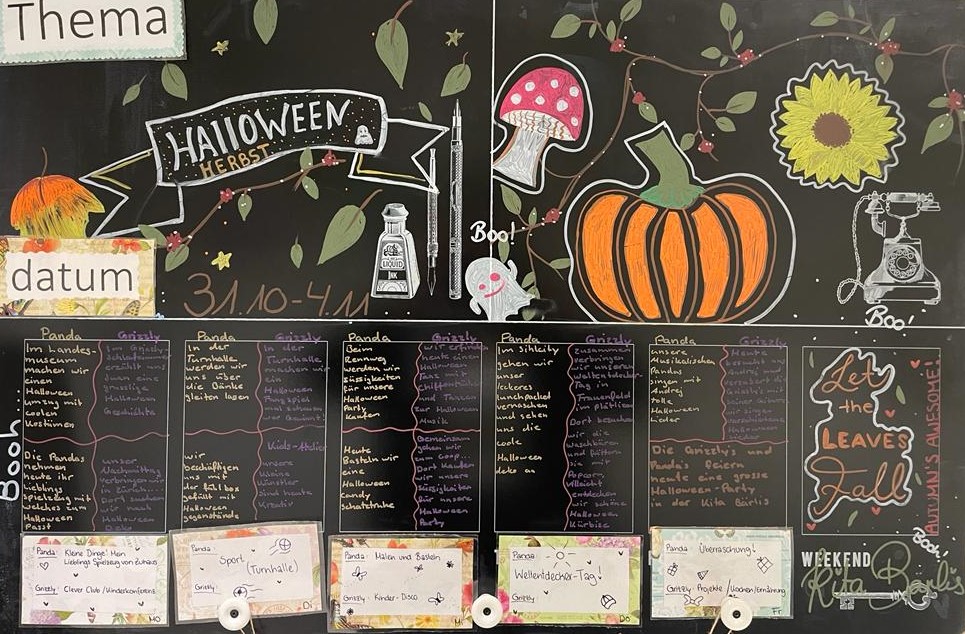 Thema
HALLOWEEN
HERBST
datum
31.10-4.11
LIQUID
INK
Boo!
Boo!
Panda
Im Landes-
museum
machen wir
einen
Halloween
umzug mit
coolen
Kostümen
Grizzly
Geschichte
Die Pandas
nehmen
heute ihr
lieblings
Spielzeug mit
welches zum
Halloween
Passt
unser
Nachmittag
verbringen wir
in Zürich
Halloween
Panda
In der
Turnhalle
werden wir
uns über
die Bänke
gleiten lassen
Grizzly
In der
Turnhalle
wir
beschäftigen
uns mit
der fell box
gefüllt mit
Halloween
gegenstände
Kids-Atelier
unsere
kleine
Künstler
sind heute
Kreativ
Panda
Beim
Rennweg
werden wir
süssigkeiten
für unsere
Halloween
Party
kaufen
Grizzly
heute einen
Halloween
Tanz mit
und Tanzen
zur Halloween
Musik
Heute
Basteln wir
eine
Halloween
candy
schatztruhe
Gemeinsam
gehen wir
zum Coop...
Dort kaufen
wir unsere
Süssigkeiten
für unsere
Halloween
Party
Panda
Im Sihlcity
gehen wir
unser
leckeres
lunchpacked
vernaschen
und sehen
uns die
coole
Halloween
deko an
Grizzly
zusammen
verbringen
wir unseren
weltentdecker-
Tag in
Frauenfeld
im plättli zoo
Dort besuchen
wir die
Waschbären
und füttern
sie mit
Popcorn,
Vielleicht
entdecken
wir schöne
Halloween
Kürbise
Panda
unsere
Musikalischen
Pandas
singen mit
Andrej
tolle
Halloween
Lieder
Grizzly
Heute
besucht uns
Andrej und
wir singen
Halloween
Lieder
Die Grizzly's und
Panda's feiern
heute eine grosse
Halloween-Party
in der Kita Bärlis
Let
the
LEAVES
Fall
AUTUMN'S AWESOME!
Booh..
Booh!
WEEKEND
Kita Bärlis
Panda: Kleine Dinge! Mein
Lieblings Spielzeug von Zuhaus
Grizzly: Clever Club / Kinderkonferenz
MO
Panda:
Sport
(Turnhalle)
Grizzly:
Di
Panda: Malen und Basteln
Grizzly: Kinder-Disco
Mi
Panda:
Weltentdecker-Tag!
Grizzly:
Do
Panda: Überraschung!
Grizzly: Projekte / Kochen/Ernährung
Fr